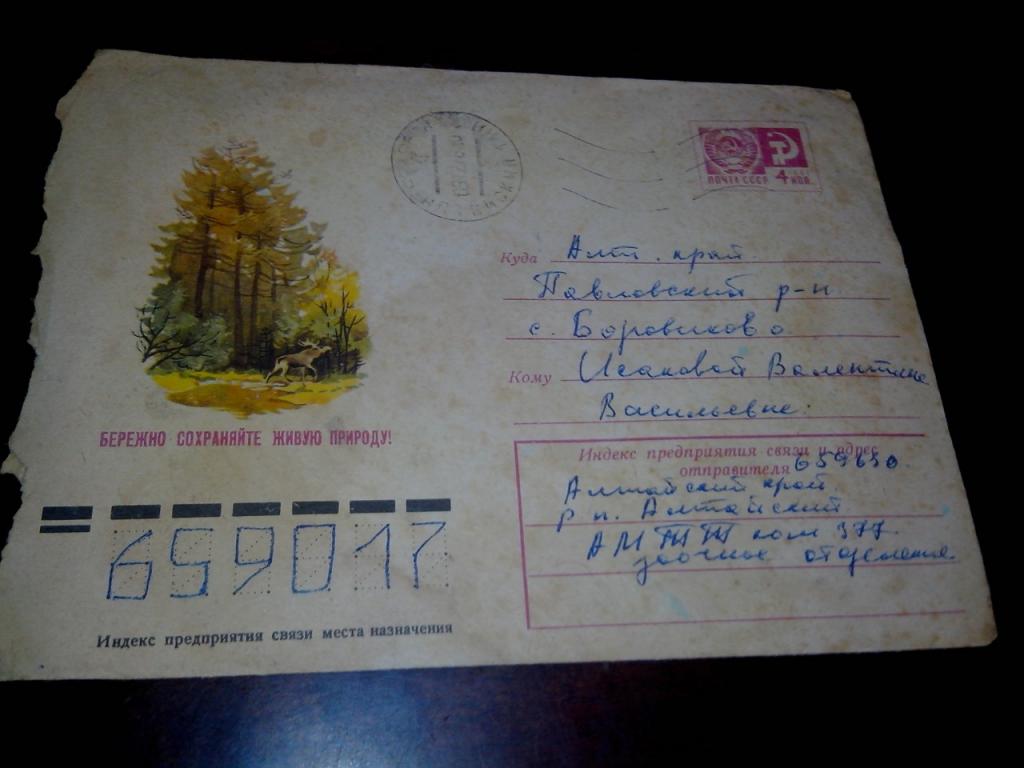 ПОЧТА СССР 4 КОП.
Куда Алт. край
Павловский р-н
с. Боровиково
Кому Исаковой Валентине
Васильевне.
БЕРЕЖНО СОХРАНЯЙТЕ ЖИВУЮ ПРИРОДУ!
Индекс предприятия связи и адрес
отправителя 659630
Алтайский край
р п. Алтайский
АМТТ ком 377
заочное отделение
659017
Индекс предприятия связи места назначения